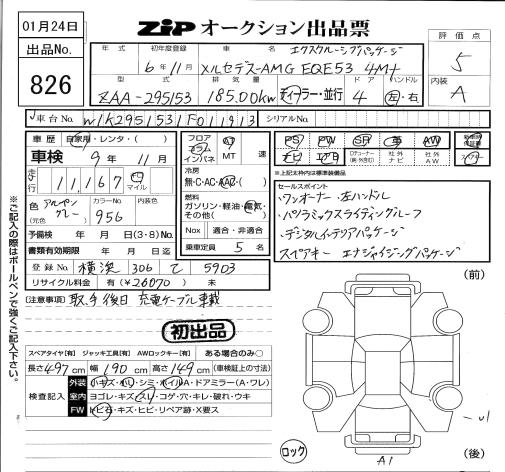 01月24日
ZIP オークション出品票
出品No.
826
評価点
5
内装
A
年式 初年度登録 車名 エクスクルーシブパッケージ
6年11月 メルセデス-AMG EQE53 4M+
型式 排気量 ドア ハンドル
ZAA-295153 185.00kw ディーラー・並行 4 左・右
車台No. W1K2951531F011913 シリアルNo.
車歴 自家用・レンタ・( )
車検 9年 11月
走行 11,167 km マイル
色 アルペングレー
(元色)
カラーNo. 956
内装色
予備検 年 月 日(3・8)No.
書類有効期限 年 月 日
登録No. 横浜 306 て 5903
リサイクル料金 有(¥26070) 未
フロア コラム インパネ
AT MT 速
冷房
無・C・AC・AAC・( )
燃料
ガソリン・軽油・電気・その他( )
Nox 適合・非適合
乗車定員 5名
PS PW SR 革 AW
ナビ エアB 社外ナビ 社外AW
新車時保証書
スペアキー
※上記太枠内は標準装備品
セールスポイント
・ワンオーナー・左ハンドル
・パノラミックスライディングルーフ
・デジタルインテリアパッケージ
スペアキー エナジャイジングパッケージ
注意事項 取・手後日 充電ケーブル車載
初出品
スペアタイヤ[有] ジャッキ工具[有] AWロックキー[有] ある場合のみ○
長さ497cm 幅190cm 高さ149cm (車検証上の寸法)
検査記入
外装 小キズ・凹・シミ・ホイルA・ドアミラー(A・ワレ)
室内 ヨゴレ・キズ・スレ・コゲ・穴・キレ・破れ・ウキ
FW トビ石・キズ・ヒビ・リペア跡・X要ス
※ご記入の際はボールペンで強くご記入下さい。
(前)
ロック
A1
(後)